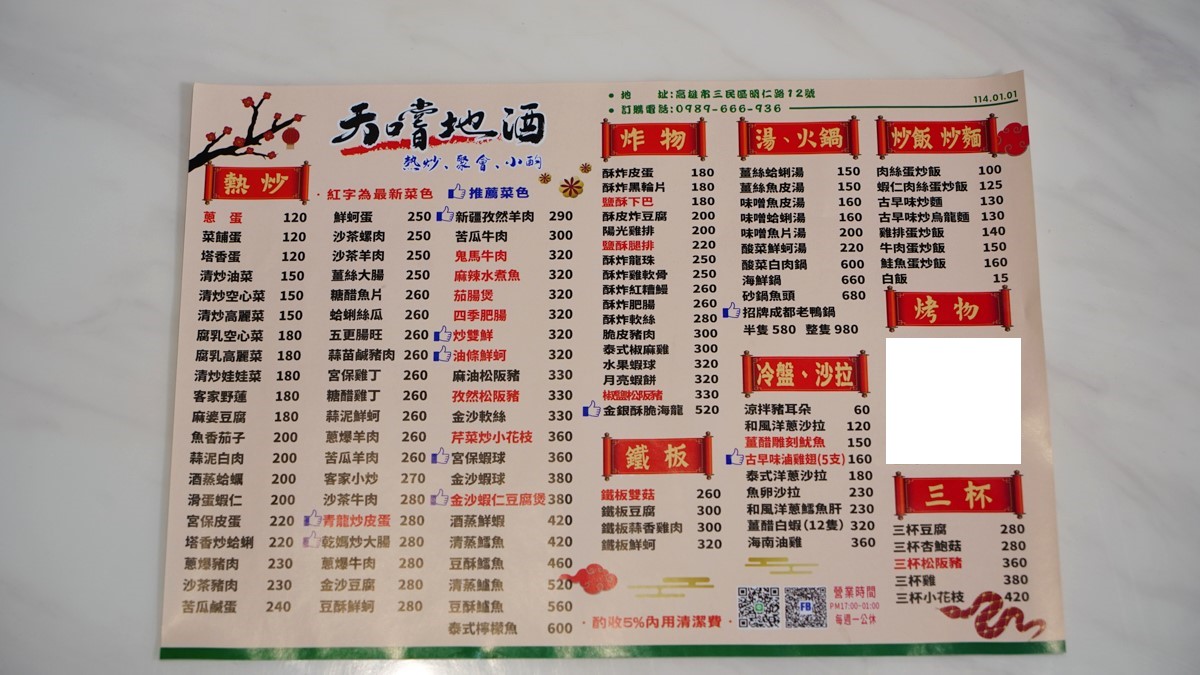 天嚐地酒
熱炒、聚會、小酌
• 地 址:高雄市三民區明仁路12號
• 訂購電話:0989-666-936
114.01.01
熱炒
• 紅字為最新菜色
推薦菜色
蔥 蛋 120
菜脯蛋 120
塔香蛋 120
清炒油菜 150
清炒空心菜 150
清炒高麗菜 150
腐乳空心菜 180
腐乳高麗菜 180
清炒娃娃菜 180
客家野蓮 180
麻婆豆腐 180
魚香茄子 200
蒜泥白肉 200
酒蒸蛤蠣 200
滑蛋蝦仁 200
宮保皮蛋 220
塔香炒蛤蜊 220
蔥爆豬肉 230
沙茶豬肉 230
苦瓜鹹蛋 240
鮮蚵蛋 250
沙茶螺肉 250
沙茶羊肉 250
薑絲大腸 250
糖醋魚片 260
蛤蜊絲瓜 260
五更腸旺 260
蒜苗鹹豬肉 260
宮保雞丁 260
糖醋雞丁 260
蒜泥鮮蚵 260
蔥爆羊肉 260
苦瓜羊肉 260
客家小炒 270
沙茶牛肉 280
青龍炒皮蛋 280
乾媽炒大腸 280
蔥爆牛肉 280
金沙豆腐 280
豆酥鮮蚵 280
新疆孜然羊肉 290
苦瓜牛肉 300
鬼馬牛肉 320
麻辣水煮魚 320
茄腸煲 320
四季肥腸 320
炒雙鮮 320
油條鮮蚵 320
麻油松阪豬 330
孜然松阪豬 330
金沙軟絲 330
芹菜炒小花枝 360
宮保蝦球 360
金沙蝦球 380
金沙蝦仁豆腐煲 380
酒蒸鮮蝦 420
清蒸鱈魚 420
豆酥鱈魚 460
清蒸鱸魚 520
豆酥鱸魚 560
泰式檸檬魚 600
炸物
酥炸皮蛋 180
酥炸黑輪片 180
鹽酥下巴 180
酥皮炸豆腐 200
陽光雞排 200
鹽酥腿排 220
酥炸龍珠 250
酥炸雞軟骨 250
酥炸紅糟鰻 260
酥炸肥腸 260
酥炸軟絲 280
脆皮豬肉 300
泰式椒麻雞 300
水果蝦球 320
月亮蝦餅 320
椒鹽松阪豬 330
金銀酥脆海龍 520
鐵板
鐵板雙菇 260
鐵板豆腐 300
鐵板蒜香雞肉 300
鐵板鮮蚵 320
湯、火鍋
薑絲蛤蜊湯 150
薑絲魚皮湯 150
味噌魚皮湯 160
味噌蛤蜊湯 160
味噌魚片湯 200
酸菜鮮蚵湯 220
酸菜白肉鍋 600
海鮮鍋 660
砂鍋魚頭 680
招牌成都老鴨鍋
半隻 580 整隻 980
冷盤、沙拉
涼拌豬耳朵 60
和風洋蔥沙拉 120
薑醋雕刻魷魚 150
古早味滷雞翅(5支) 160
泰式洋蔥沙拉 180
魚卵沙拉 230
和風洋蔥鱈魚肝 230
薑醋白蝦(12隻) 320
海南油雞 360
炒飯 炒麵
肉絲蛋炒飯 100
蝦仁肉絲蛋炒飯 125
古早味炒麵 130
古早味炒烏龍麵 130
雞排蛋炒飯 140
牛肉蛋炒飯 150
鮭魚蛋炒飯 160
白飯 15
烤物
三杯
三杯豆腐 280
三杯杏鮑菇 280
三杯松阪豬 360
三杯雞 380
三杯小花枝 420
• 酌收5%內用清潔費 •
FB
營業時間
PM17:00-01:00
每週一公休